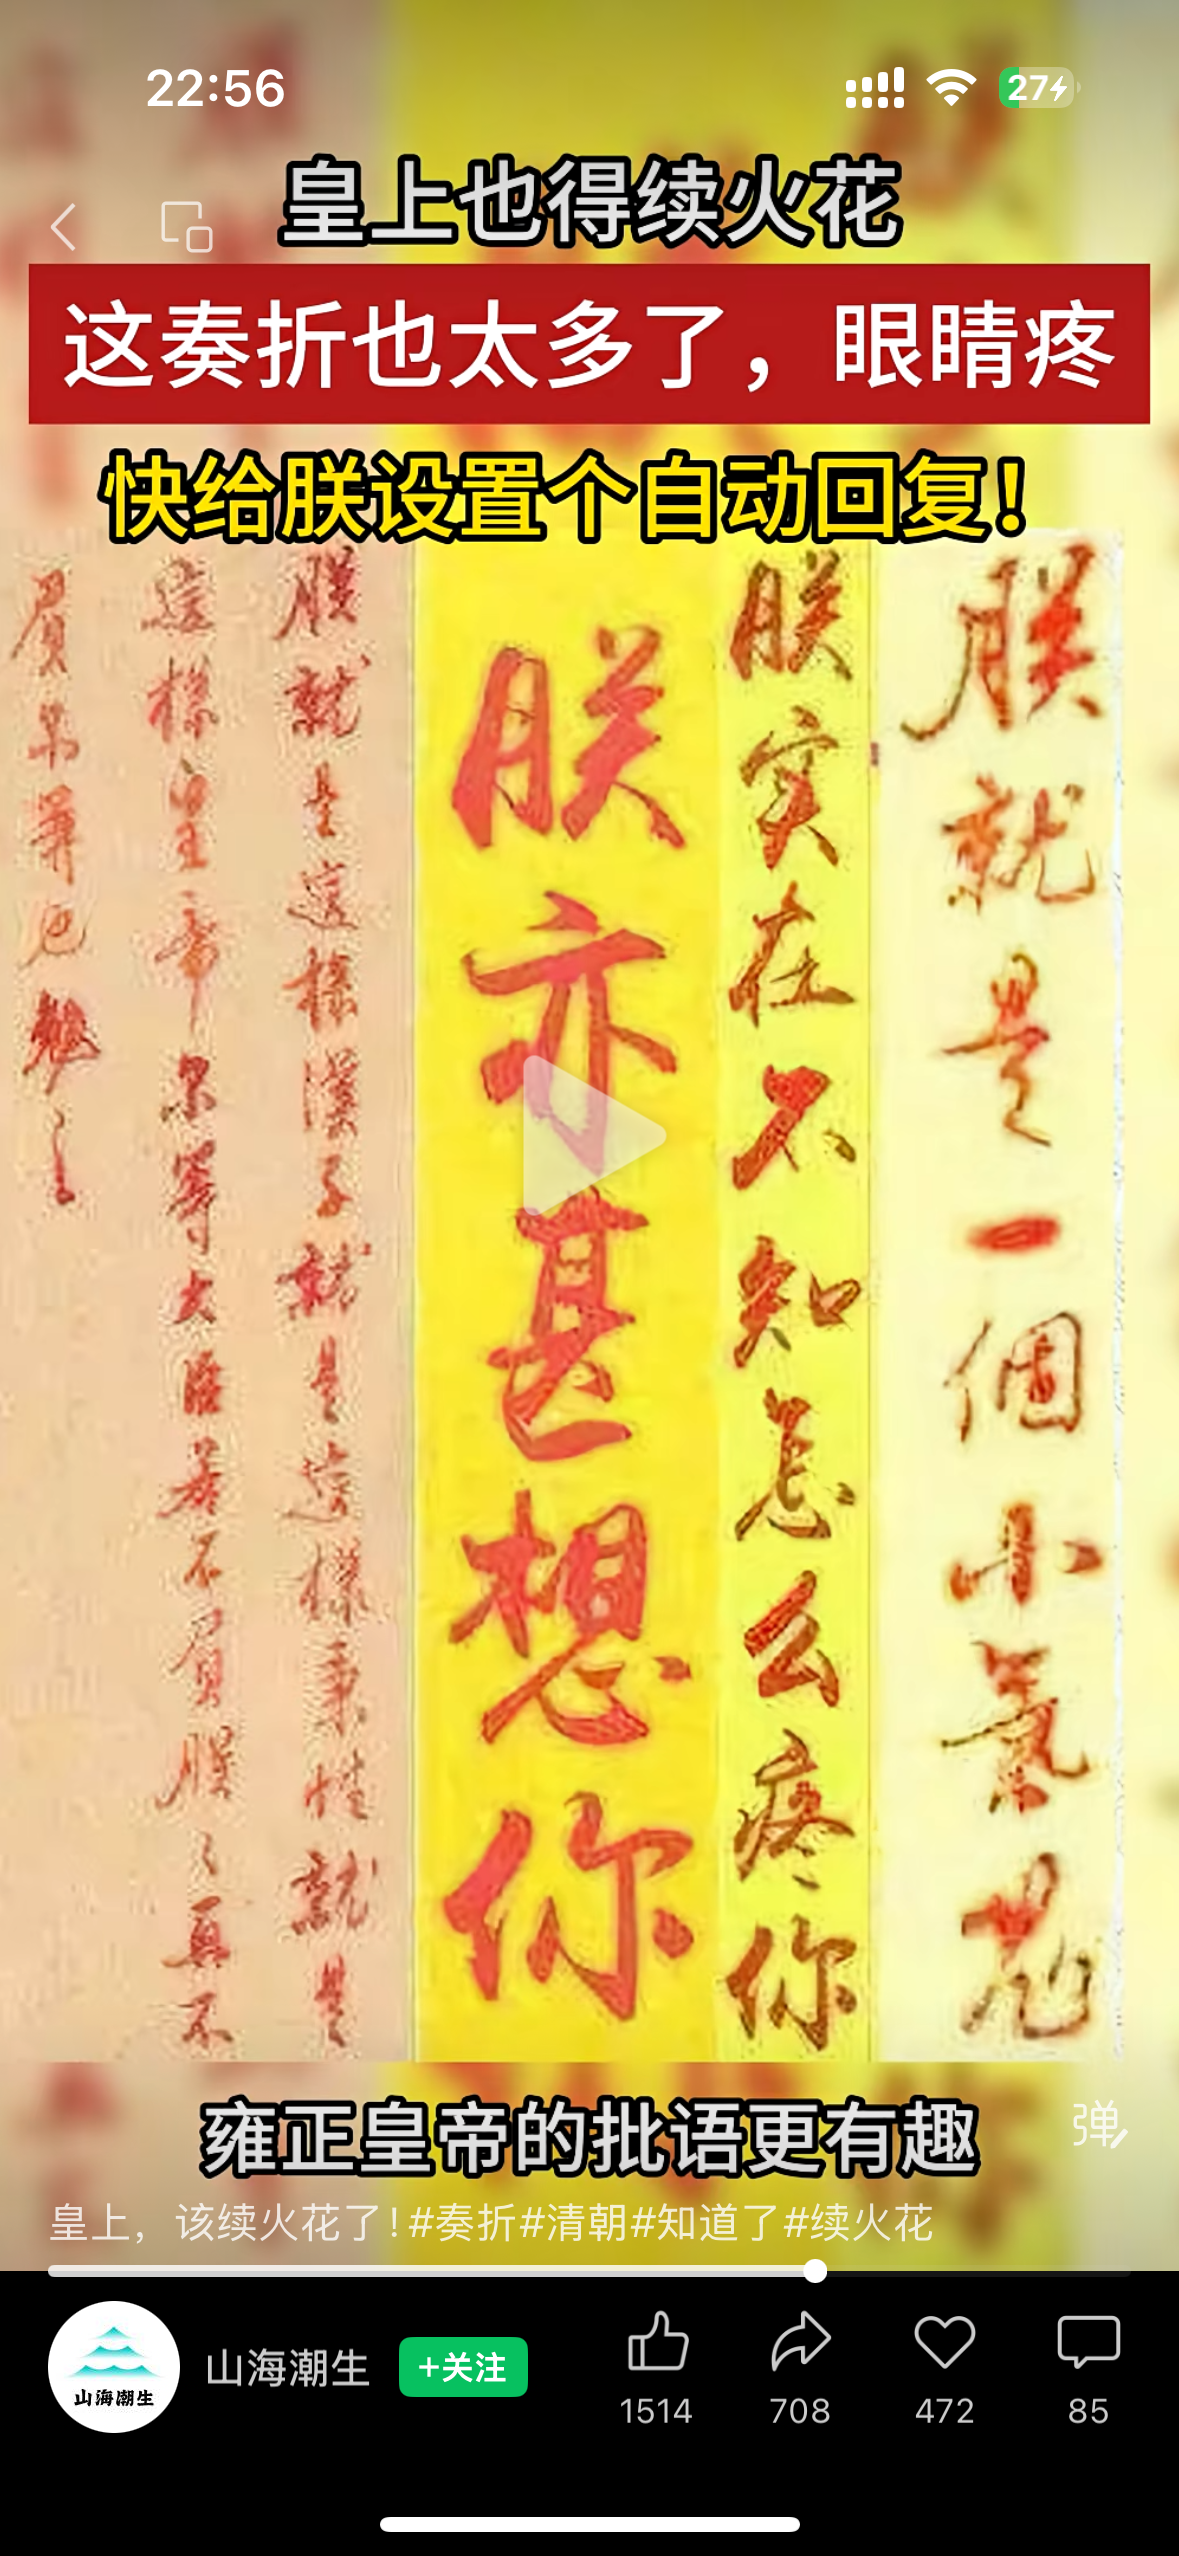 22:56
27
皇上也得续火花
这奏折也太多了，眼睛疼
快给朕设置个自动回复！
朕就是一個小氣鬼
朕实在不知怎么疼你
朕亦甚想你
朕就是這樣漢子就是這樣秉性就是
這樣皇帝尔等大臣若不負朕朕再不
負尔等也勉之
雍正皇帝的批语更有趣
弹
皇上，该续火花了！#奏折#清朝#知道了#续火花
山海潮生
山海潮生
+关注
1514
708
472
85